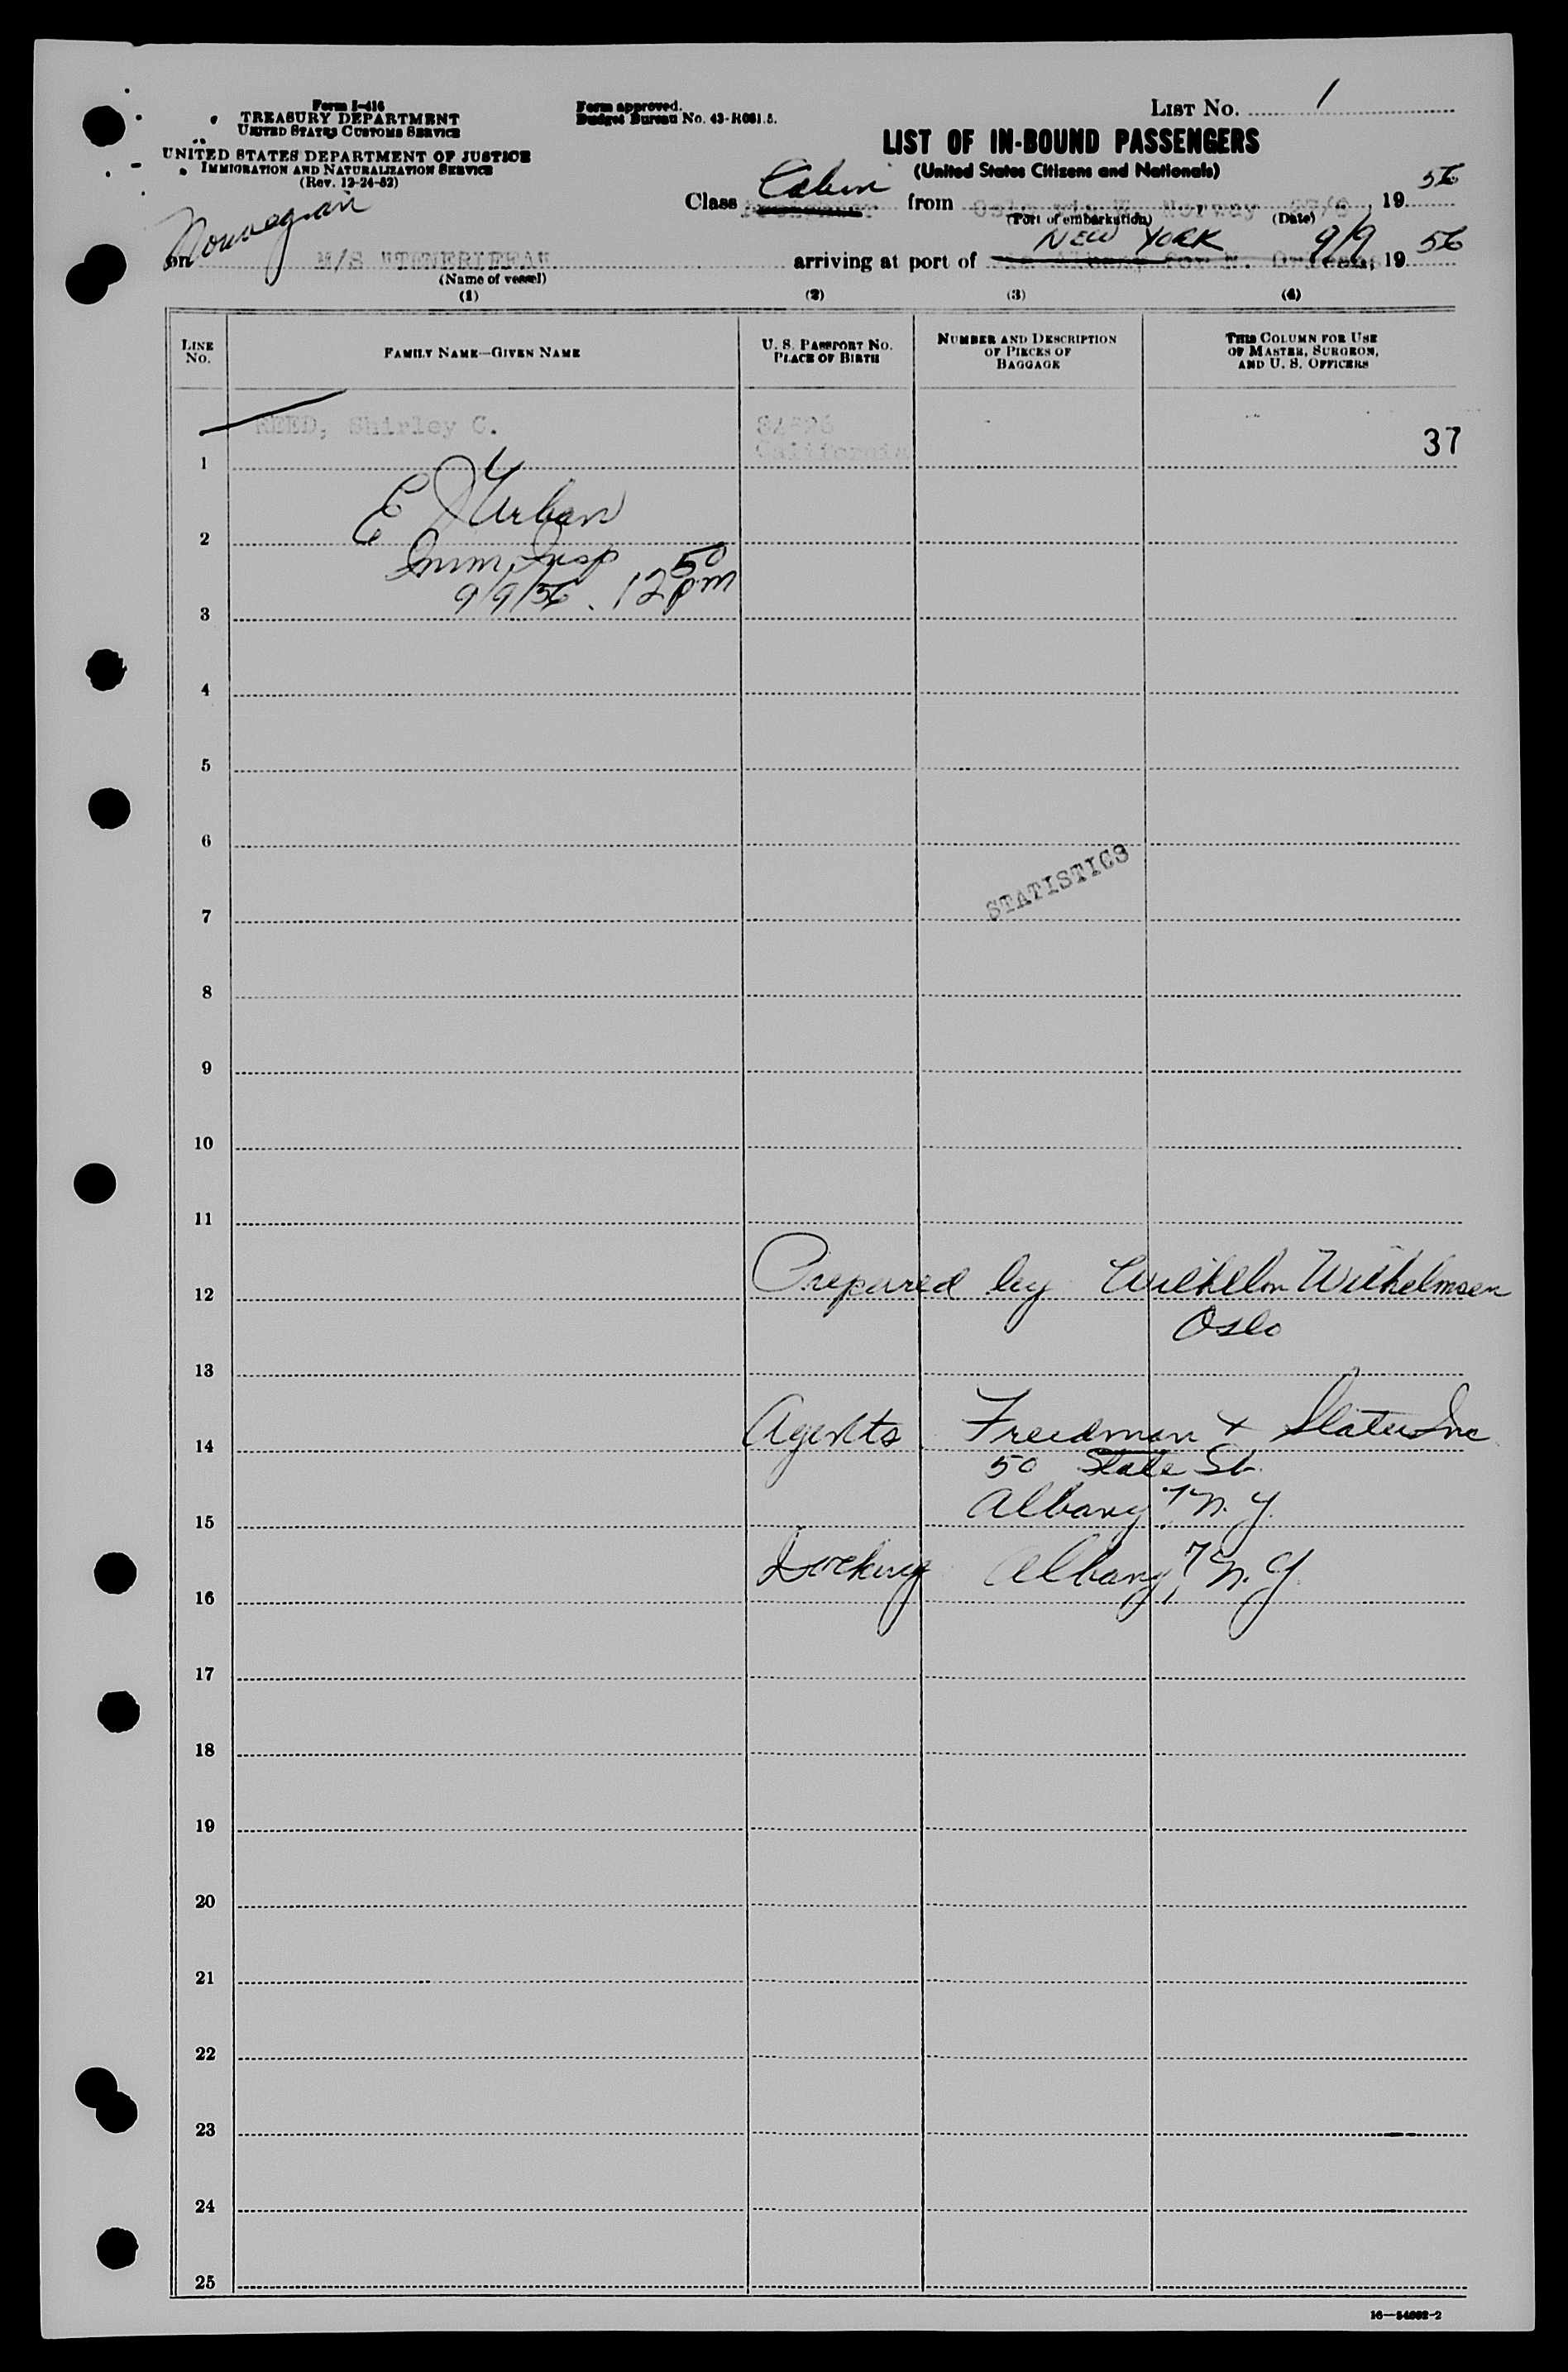 Form I-416
TREASURY DEPARTMENT
UNITED STATES CUSTOMS SERVICE
UNITED STATES DEPARTMENT OF JUSTICE
IMMIGRATION AND NATURALIZATION SERVICE
(Rev. 12-24-52)
Form approved.
Budget Bureau No. 43-R081.5.
LIST No. 1
LIST OF IN-BOUND PASSENGERS
(United States Citizens and Nationals)
Class Cabin from Norway, 19 56
(Port of embarkation) (Date)
Norwegian
on M/S "TONERIFFA" arriving at port of NEW YORK 9/9, 19 56
(Name of vessel)
(1) (2) (3) (4)
LINE NO.
FAMILY NAME—GIVEN NAME
U. S. PASSPORT NO.
PLACE OF BIRTH
NUMBER AND DESCRIPTION
OF PIECES OF
BAGGAGE
THIS COLUMN FOR USE
OF MASTER, SURGEON,
AND U. S. OFFICERS
REED, Shirley C.
California
37
1
E J Urban
2
Imm. Insp
9/9/56 . 12 50 pm
3
4
5
6
STATISTICS
7
8
9
10
11
Prepared by Wilhelm Wilhelmsen
12
Oslo
13
Agents Freedman & Slater Inc
14
50 State St.
Albany 7 N. Y.
15
Docking Albany 7, N. Y.
16
17
18
19
20
21
22
23
24
25